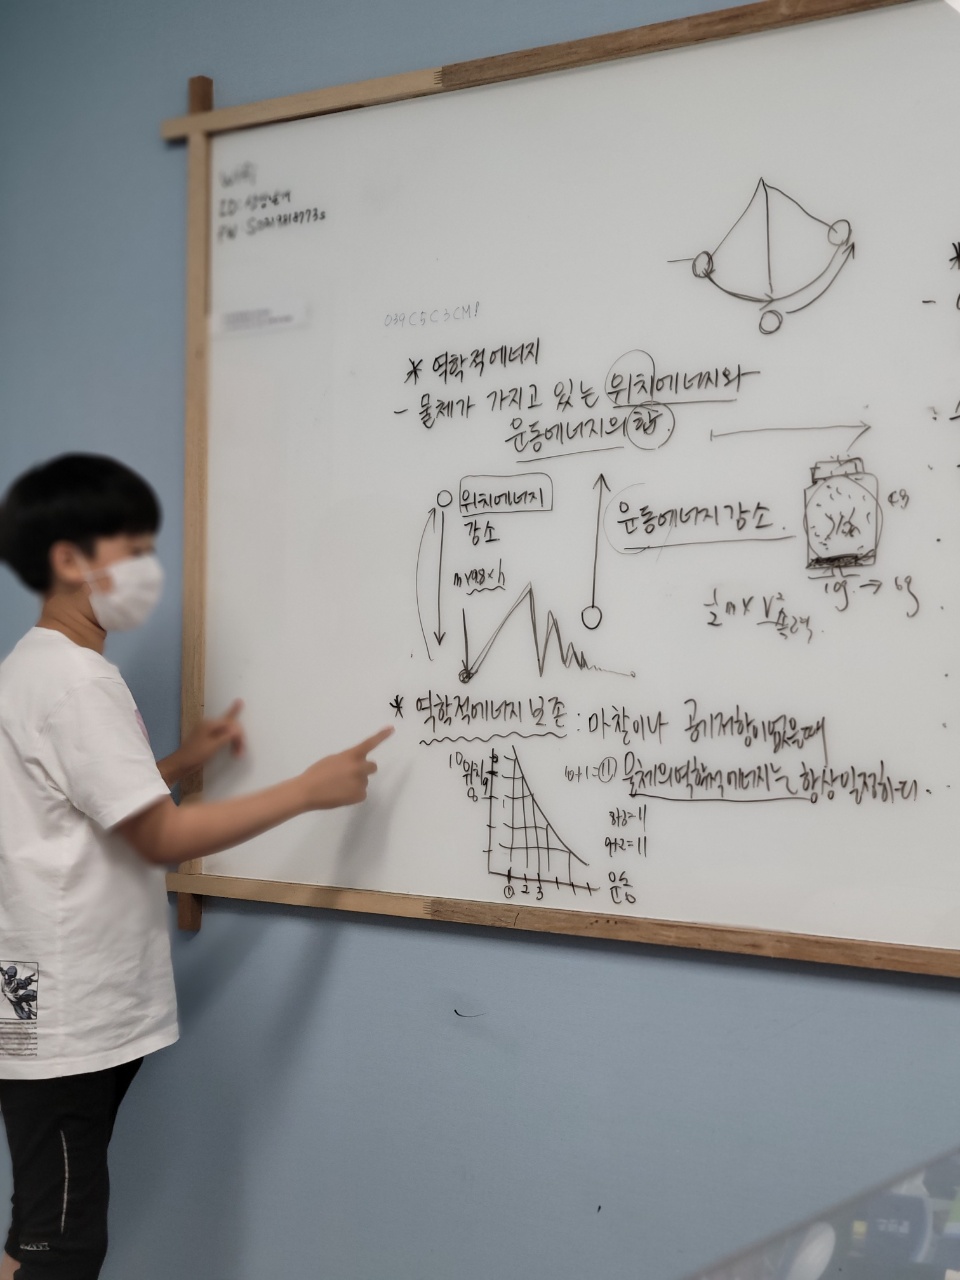 Wifi
039C5C3CM!
* 역학적에너지
- 물체가 가지고 있는 위치에너지와
운동에너지의 합.
위치에너지
감소
운동에너지 감소.
m×9.8×h
1g → 6g
½ m × v²
속력
* 역학적에너지 보존 : 마찰이나 공기저항이 없을 때
10+1=⑪ 물체의 역학적 에너지는 항상 일정하다.
10
위치
9
8
8+3=11
9+2=11
① 2 3
운동